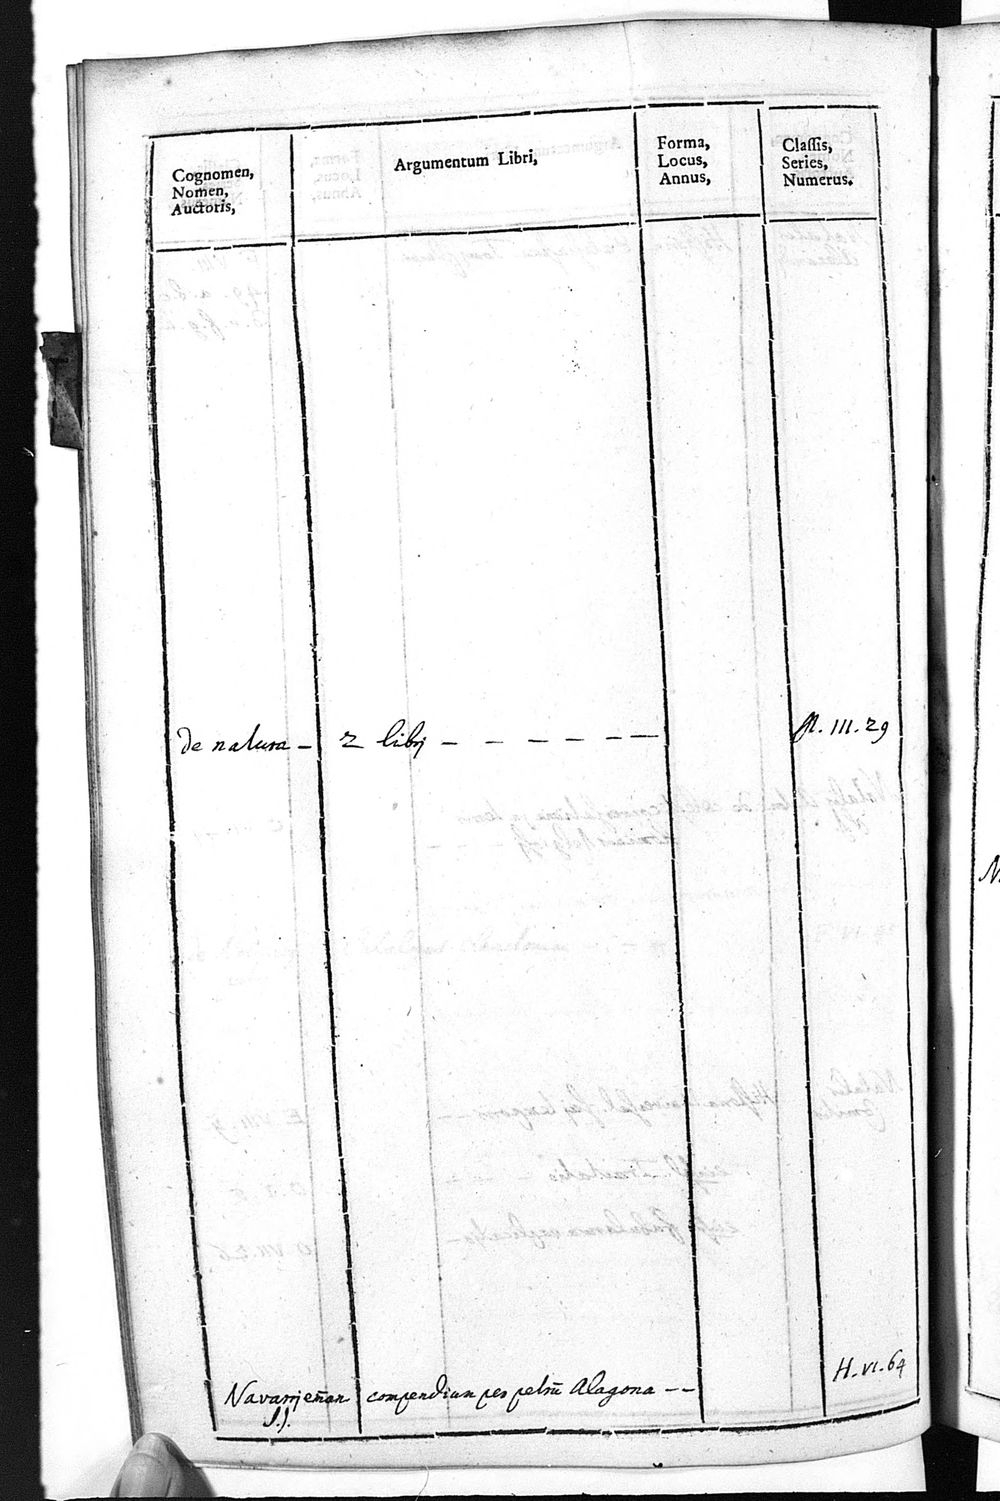 Cognomen,
Nomen,
Auctoris,
Argumentum Libri,
Forma,
Locus,
Annus,
Classis,
Series,
Numerus.
De natura – 2 libri – – – – – – III. 29
compendium per petrū Alagona – – H. VI. 64